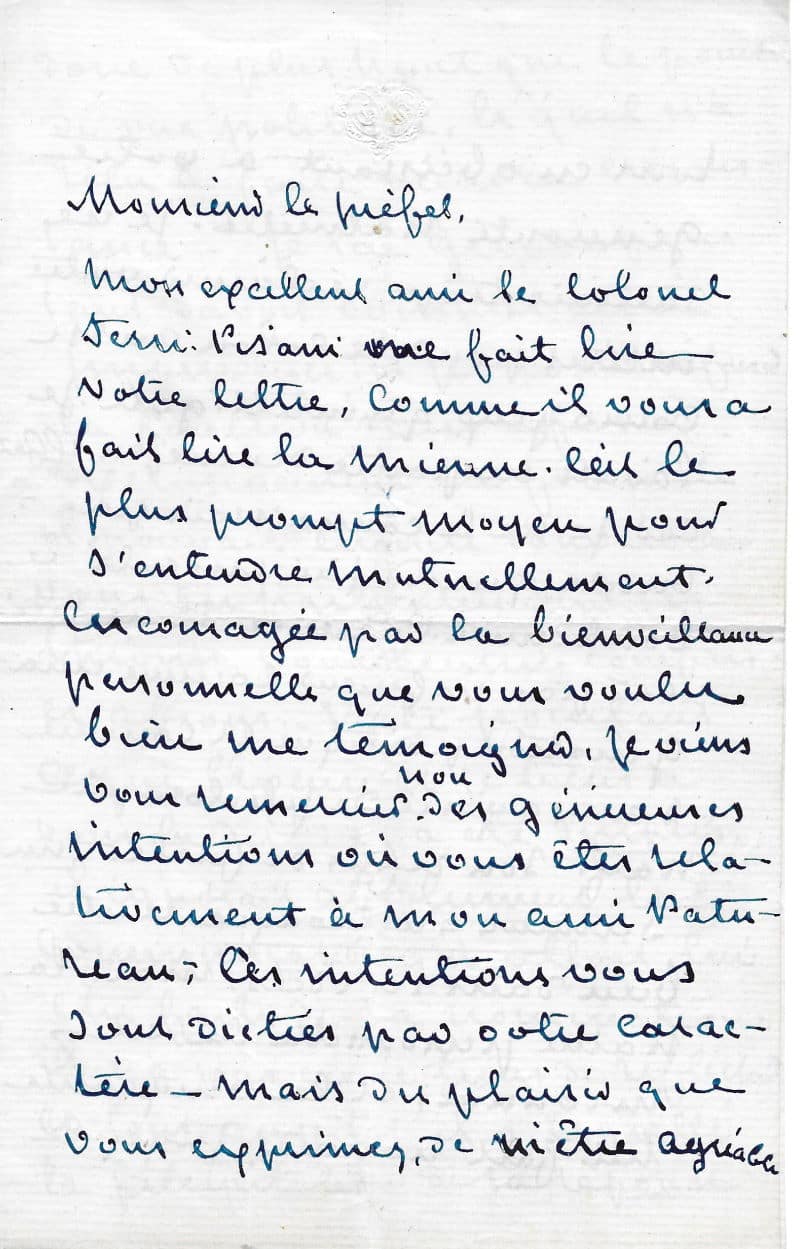 Monsieur le préfet,
Mon excellent ami le Colonel
Ferri-Pisani me fait lire
votre lettre, comme il vous a
fait lire la mienne. C'est le
plus prompt moyen pour
s'entendre mutuellement.
Encouragée par la bienveillance
personnelle que vous voulez
bien me témoigner, je viens
vous remercier non des généreuses
intentions où vous êtes rela-
tivement à mon ami Patu-
reau; Ces intentions vous
sont dictées par votre carac-
tère – mais du plaisir que
vous exprimez, de m'être agréable